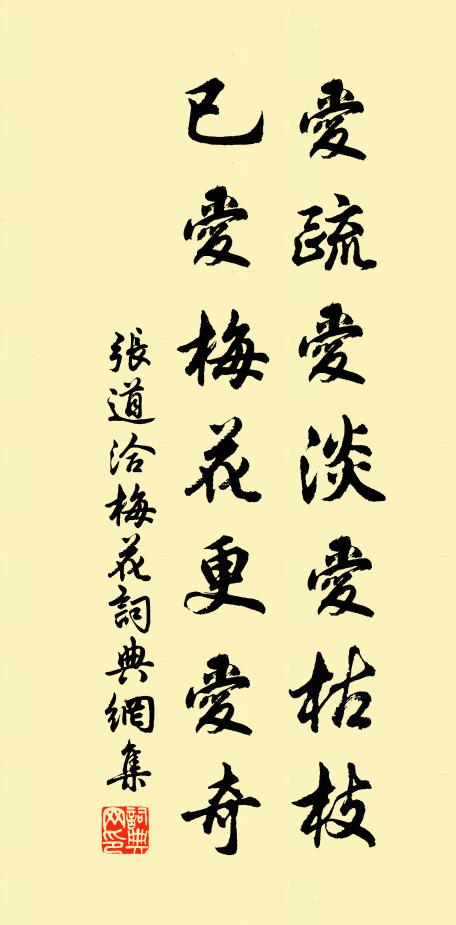 愛疏愛淡愛枯枝
已愛梅花更愛奇
張道洽梅花詞典網集
詞典网印